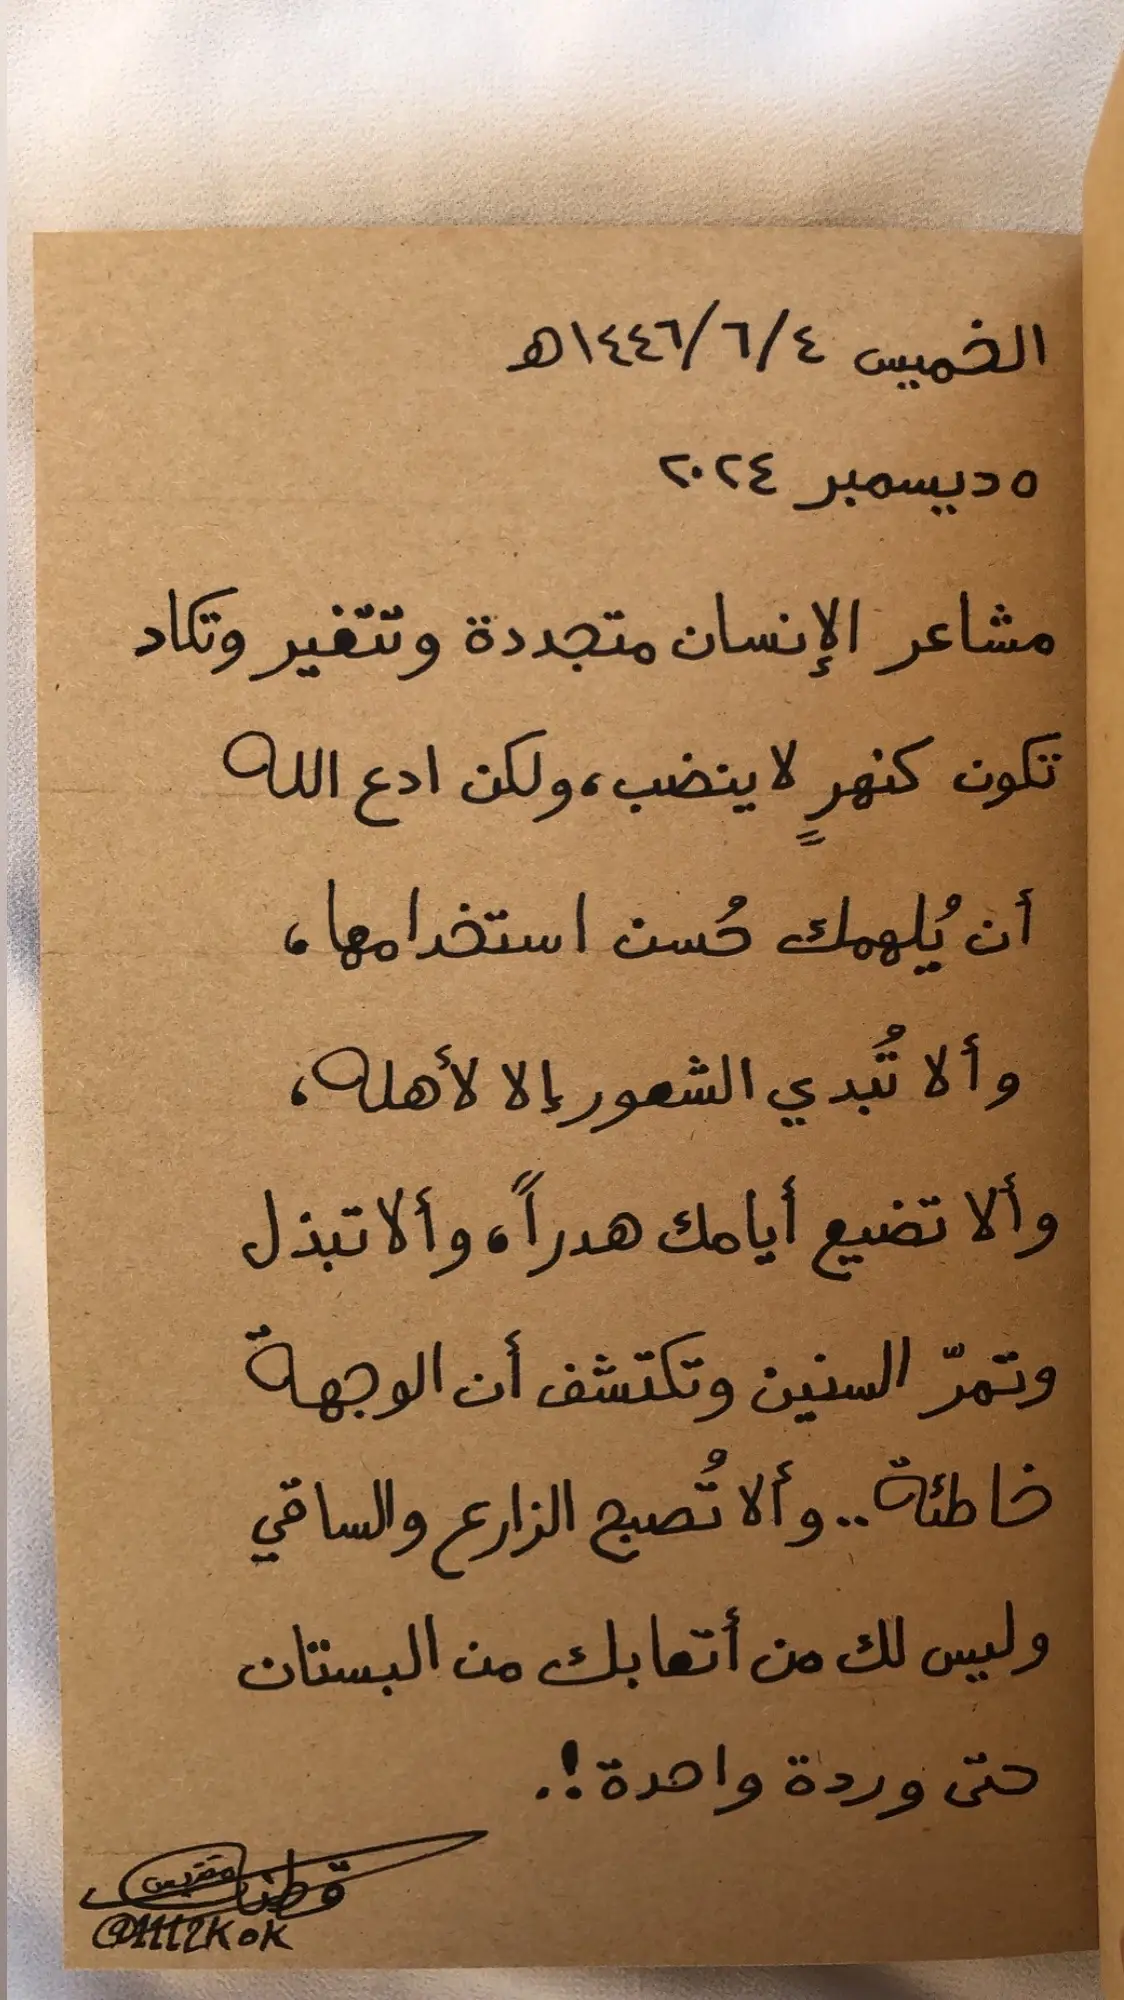 الخميس ٤/٦/١٤٤٦هـ
٥ ديسمبر ٢٠٢٤
مشاعر الإنسان متجددة وتتغير وتكاد
تكون كنهرٍ لا ينضب، ولكن ادع الله
أن يُلهمك حُسن استخدامها،
وألا تُبدي الشعور إلا لأهله،
وألا تضيع أيامك هدراً، وألا تبذل
وتمرّ السنين وتكتشف أن الوجهة
خاطئة.. وألا تُصبح الزارع والساقي
وليس لك من أتعابك من البستان
حتى وردة واحدة!.